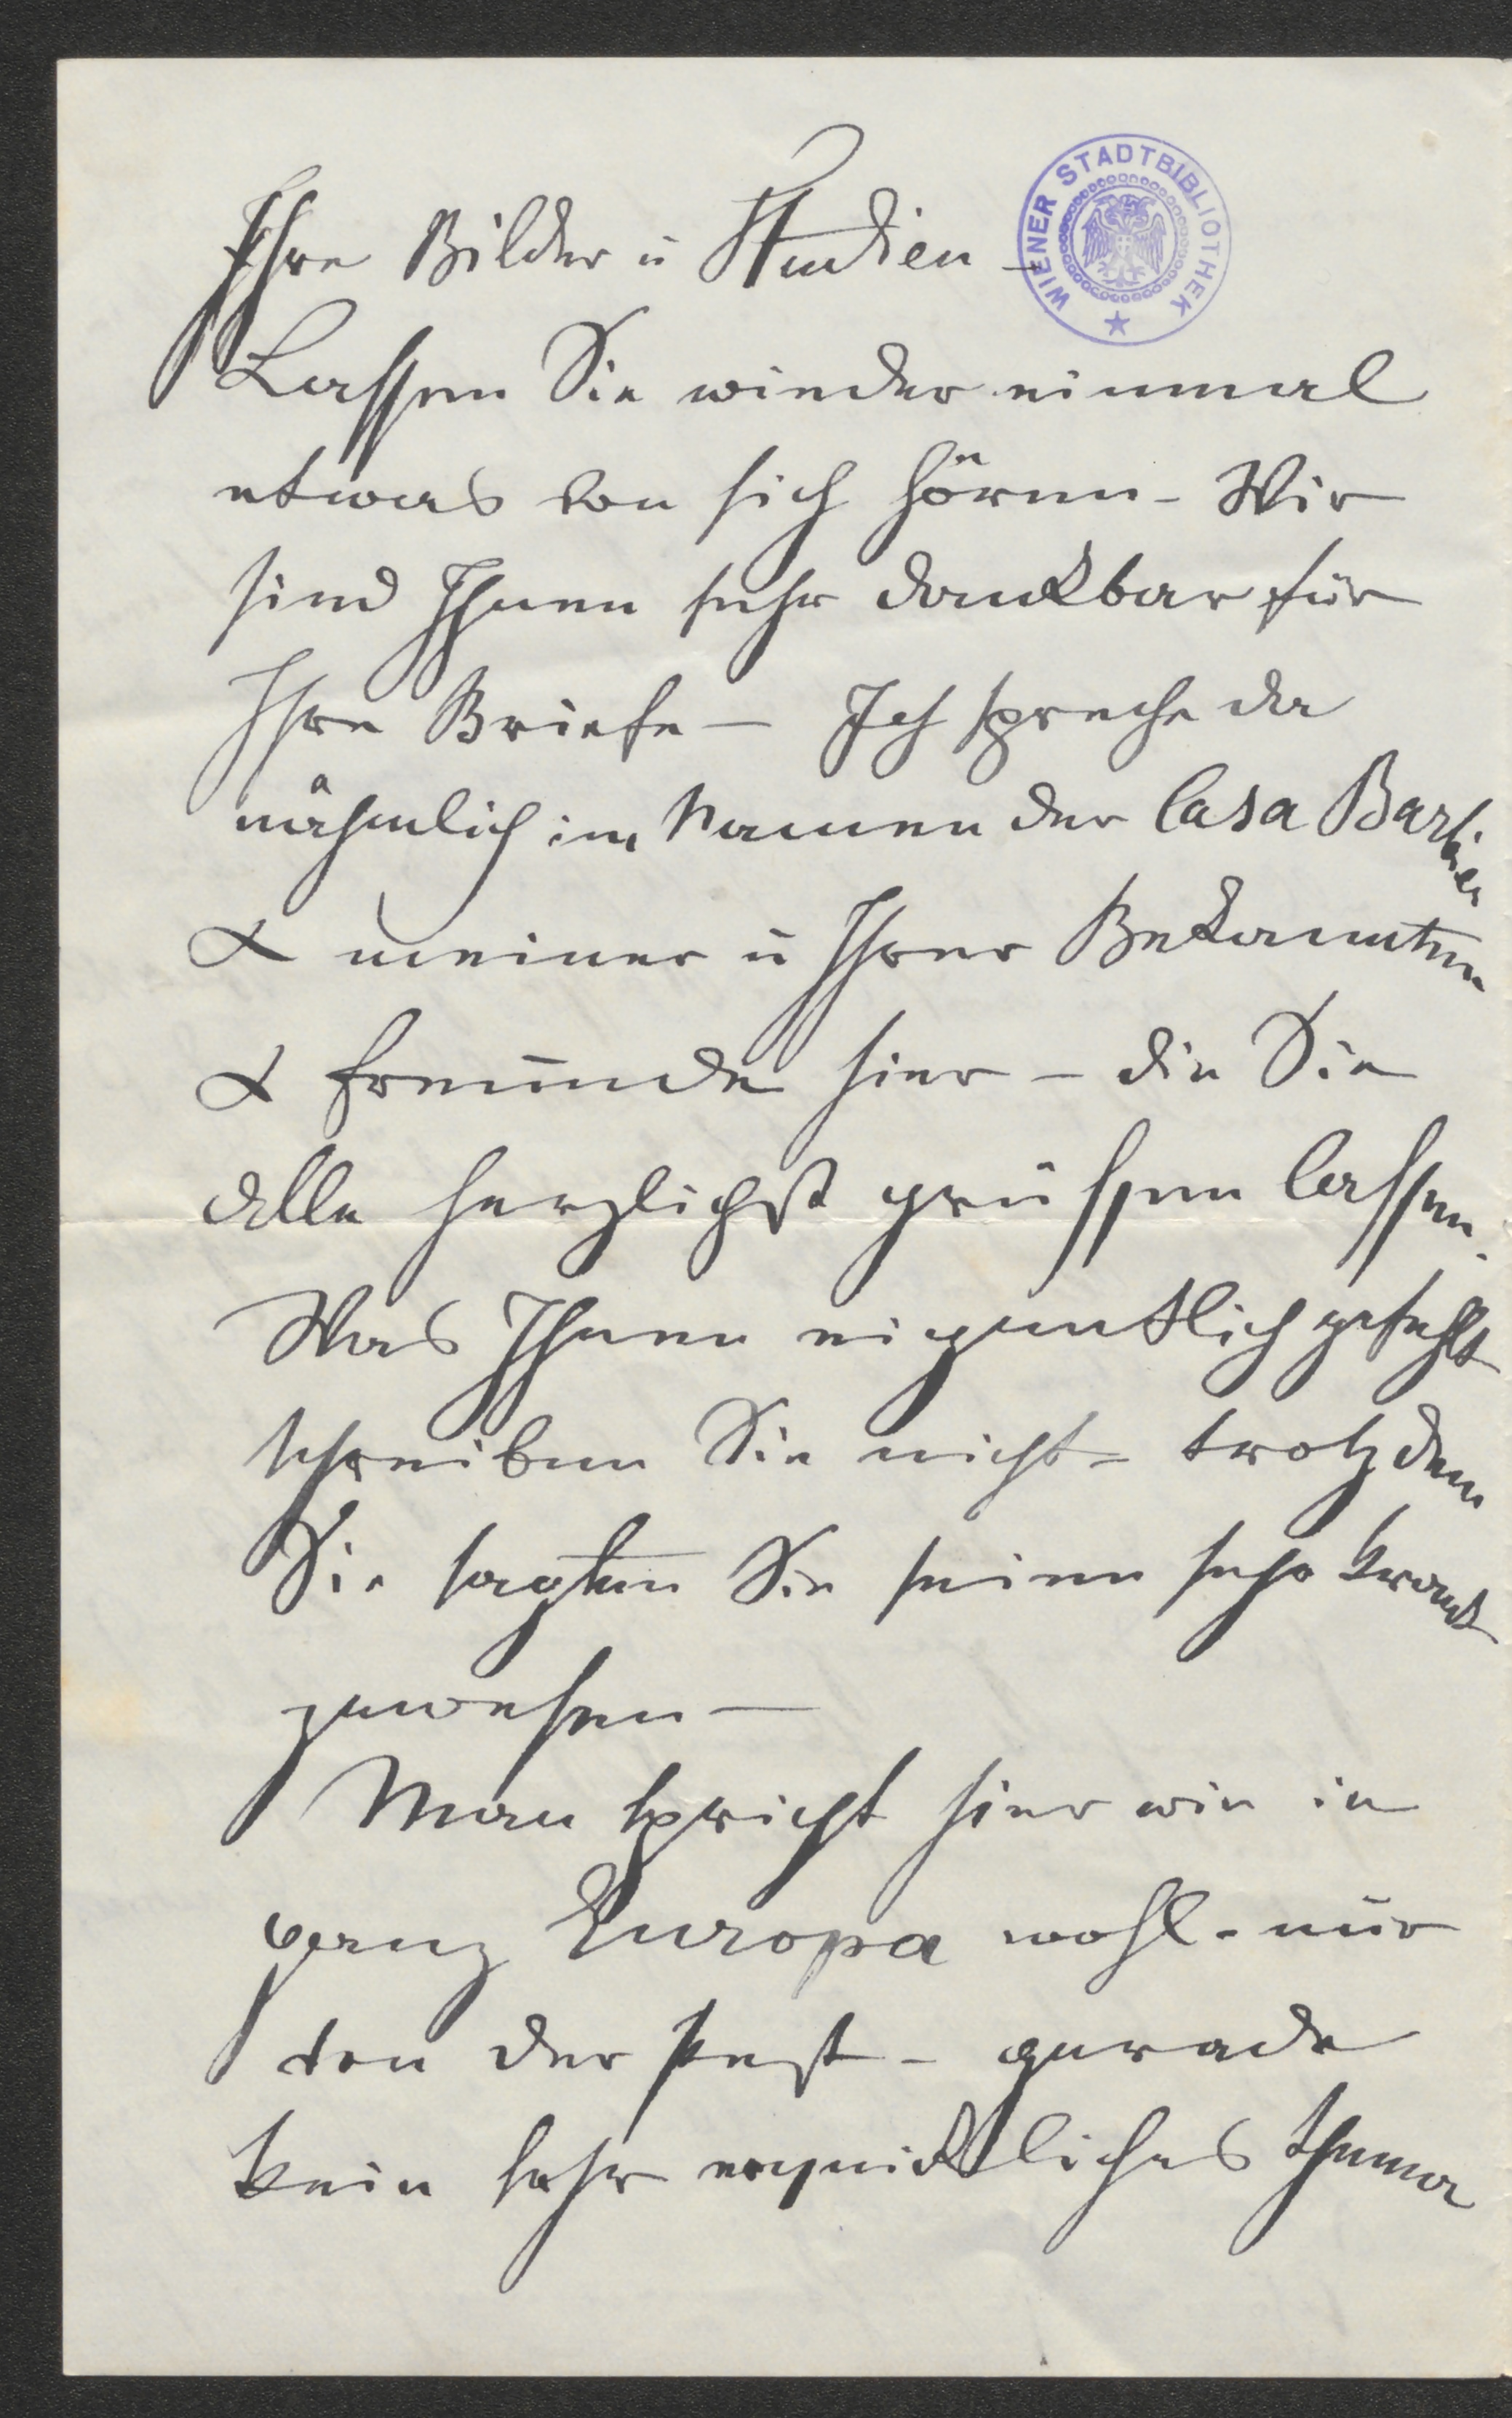 WIENER STADTBIBLIOTHEK
Ihre Bilder u Studien –
Lassen Sie wieder einmal
etwas von sich hören – Wir
sind Ihnen sehr dankbar für
Ihre Briefe – Ich spreche da
nähmlich im Namen der Casa Barbier
& meiner u Ihrer Bekannten
& Freunde hier – die Sie
Alle herzlichst grüssen lassen.
Was Ihnen eigentlich gefehlt
schreiben Sie nicht – trotzdem
Sie sagten Sie seien sehr krank
gewesen –
Man spricht hier wie in
ganz Europa wohl – nur
von der Pest – gerade
kein sehr erquickliches Thema